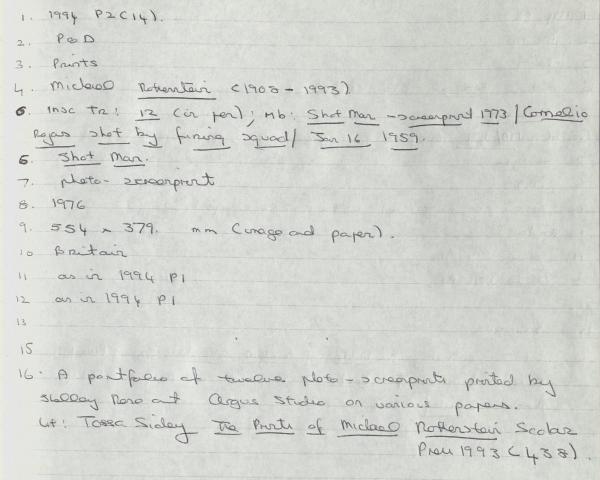 1. 1994 P2 (14).
2. P&D
3. Prints
4. Michael Rothenstein (1908 - 1993)
5. Insc TR: 12 (in pen); Mb: Shot Man - screenprint 1973 / Cornelio
Rojas shot by firing squad / Jan 16 1959.
6. Shot Man.
7. photo - screenprint
8. 1976
9. 554 x 379. mm (image and paper).
10 Britain
11 as in 1994 P1
12 as in 1994 P1
13
15
16. A portfolio of twelve photo - screenprints printed by
Shelley Rose at Argus Studio on various papers.
Lit: Tessa Sidey The Prints of Michael Rothenstein Scolar
Press 1993 (438).